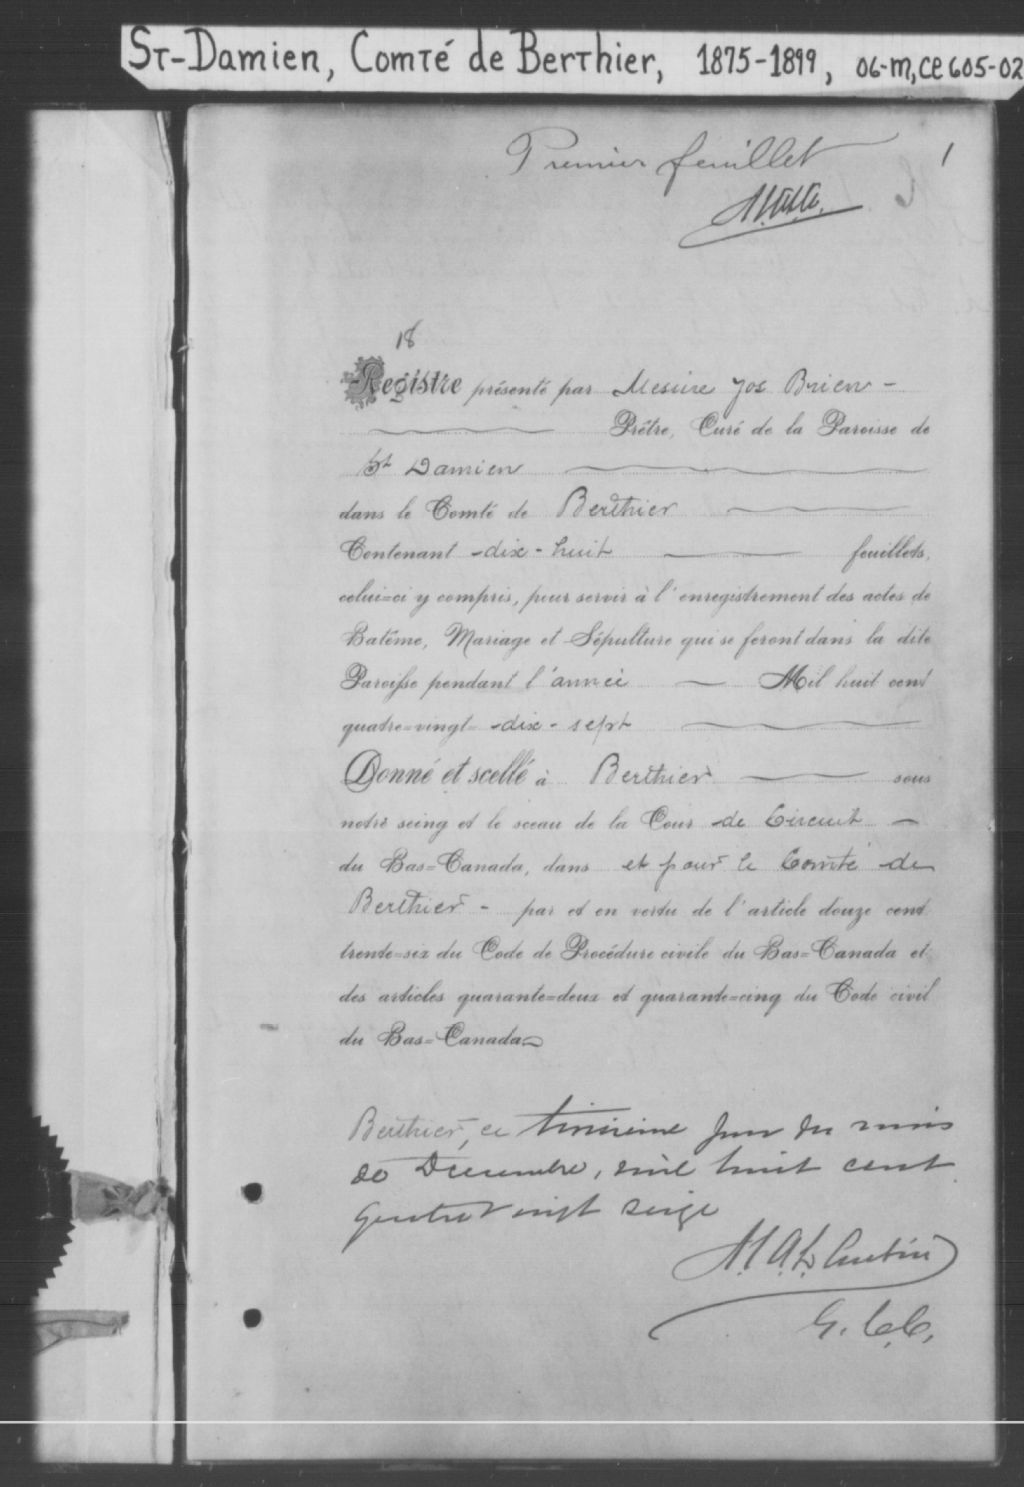 St-Damien, Comté de Berthier, 1875-1899, 06-M, CE605-02
Premier feuillet 1
18
Registre présenté par Messire Jos Brien -
Prêtre, Curé de la Paroisse de
St Damien
dans le Comté de Berthier
Contenant dix-huit feuillets,
celui=ci y compris, pour servir à l'enregistrement des actes de
Batême, Mariage et Sépulture qui se feront dans la dite
Paroisse pendant l'année Mil huit cent
quatre=vingt-dix-sept
Donné et scellé à Berthier sous
notre seing et le sceau de la Cour de Circuit
du Bas=Canada, dans et pour le Comté de
Berthier - par et en vertu de l'article douze cent
trente=six du Code de Procédure civile du Bas=Canada et
des articles quarante=deux et quarante=cinq du Code civil
du Bas=Canada.
Berthier, ce jour du mois
de Décembre, mil huit cent
quatre vingt seize
G.C.C.